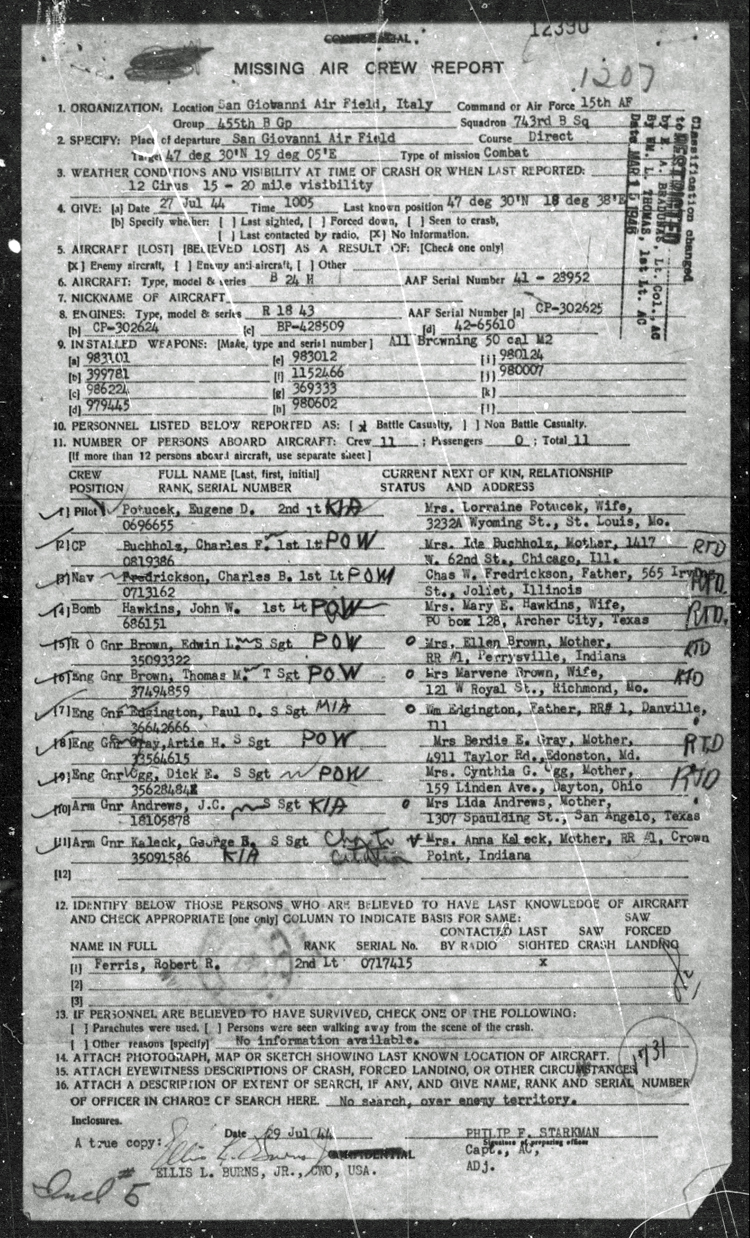 12390
CONFIDENTIAL
MISSING AIR CREW REPORT
1207
1. ORGANIZATION: Location San Giovanni Air Field, Italy Command or Air Force 15th AF
Group 455th B Gp Squadron 743rd B Sq
2. SPECIFY: Place of departure San Giovanni Air Field Course Direct
Target 47 deg 30'N 19 deg 05'E Type of mission Combat
3. WEATHER CONDITIONS AND VISIBILITY AT TIME OF CRASH OR WHEN LAST REPORTED:
12 Cirus 15 - 20 mile visibility
4. GIVE: [a] Date 27 Jul 44 Time 1005 Last known position 47 deg 30'N 18 deg 38'E
[b] Specify whether: [ ] Last sighted, [ ] Forced down, [ ] Seen to crash,
[ ] Last contacted by radio, [X] No information.
5. AIRCRAFT [LOST] [BELIEVED LOST] AS A RESULT OF: [Check one only]
[X] Enemy aircraft, [ ] Enemy anti-aircraft, [ ] Other
6. AIRCRAFT: Type, model & series B 24 H AAF Serial Number 41 - 28952
7. NICKNAME OF AIRCRAFT
8. ENGINES: Type, model & series R 18 43 AAF Serial Number [a] CP-302625
[b] CP-302624 [c] BP-428509 [d] 42-65610
9. INSTALLED WEAPONS: [Make, type and serial number] All Browning 50 cal M2
[a] 983101 [e] 983012 [i] 980124
[b] 399781 [f] 1152466 [j] 980007
[c] 986224 [g] 369333 [k]
[d] 979445 [h] 980602 [l]
10. PERSONNEL LISTED BELOW REPORTED AS: [x] Battle Casualty, [ ] Non Battle Casualty.
11. NUMBER OF PERSONS ABOARD AIRCRAFT: Crew 11 ; Passengers 0 ; Total 11
[If more than 12 persons aboard aircraft, use separate sheet]
CREW FULL NAME [Last, first, initial] CURRENT NEXT OF KIN, RELATIONSHIP
POSITION RANK, SERIAL NUMBER STATUS AND ADDRESS
[1] Pilot Potucek, Eugene D. 2nd Lt KIA Mrs. Lorraine Potucek, Wife,
0696655 3232A Wyoming St., St. Louis, Mo.
[2] CP Buchholz, Charles F. 1st Lt POW Mrs. Ida Buchholz, Mother, 1417 RTD
0819386 W. 62nd St., Chicago, Ill.
[3] Nav Fredrickson, Charles B. 1st Lt POW Chas W. Fredrickson, Father, 565 Irving RTD
0713162 St., Joliet, Illinois
[4] Bomb Hawkins, John W. 1st Lt POW Mrs. Mary E. Hawkins, Wife, RTD.
686151 PO box 128, Archer City, Texas
[5] R O Gnr Brown, Edwin L. S Sgt POW Mrs. Ellen Brown, Mother, RTD
35093322 RR #1, Perrysville, Indiana
[6] Eng Gnr Brown, Thomas M. T Sgt POW Mrs Marvene Brown, Wife, RTD
37494859 121 W Royal St., Richmond, Mo.
[7] Eng Gnr Edgington, Paul D. S Sgt MIA Wm Edgington, Father, RR# 1, Danville,
36642666 Ill
[8] Eng Gnr Gray, Artie H. S Sgt POW Mrs Berdie E. Gray, Mother, RTD
33564615 4911 Taylor Rd., Edonston, Md.
[9] Eng Gnr Ugg, Dick E. S Sgt POW Mrs. Cynthia G. Ugg, Mother, RTD
35628484 159 Linden Ave., Dayton, Ohio
[10] Arm Gnr Andrews, J.C. S Sgt KIA Mrs Lida Andrews, Mother,
18105878 1307 Spaulding St., San Angelo, Texas
[11] Arm Gnr Kaleck, George B. S Sgt Mrs. Anna Kaleck, Mother, RR #1, Crown
35091586 KIA Citation Point, Indiana
[12]
12. IDENTIFY BELOW THOSE PERSONS WHO ARE BELIEVED TO HAVE LAST KNOWLEDGE OF AIRCRAFT
AND CHECK APPROPRIATE [one only] COLUMN TO INDICATE BASIS FOR SAME: SAW
CONTACTED LAST SAW FORCED
NAME IN FULL RANK SERIAL No. BY RADIO SIGHTED CRASH LANDING
[1] Ferris, Robert R. 2nd Lt 0717415 x
[2]
[3]
13. IF PERSONNEL ARE BELIEVED TO HAVE SURVIVED, CHECK ONE OF THE FOLLOWING:
[ ] Parachutes were used. [ ] Persons were seen walking away from the scene of the crash.
[ ] Other reasons [specify] No information available.
14. ATTACH PHOTOGRAPH, MAP OR SKETCH SHOWING LAST KNOWN LOCATION OF AIRCRAFT.
15. ATTACH EYEWITNESS DESCRIPTIONS OF CRASH, FORCED LANDING, OR OTHER CIRCUMSTANCES
1731
16. ATTACH A DESCRIPTION OF EXTENT OF SEARCH, IF ANY, AND GIVE NAME, RANK AND SERIAL NUMBER
OF OFFICER IN CHARGE OF SEARCH HERE. No search, over enemy territory.
Inclosures.
Date 29 Jul 44 PHILIP F. STARKMAN
Signature of preparing officer
A true copy: Ellis L. Burns Jr Capt., AC,
CONFIDENTIAL
ELLIS L. BURNS, JR., CWO, USA. ADJ.
Incl # 5
Classification changed
to RESTRICTED
by E. A. BRADUNAS, Lt. Col., AC
By WM. L. THOMAS, 1st Lt. AC
Date MAR 15 1946